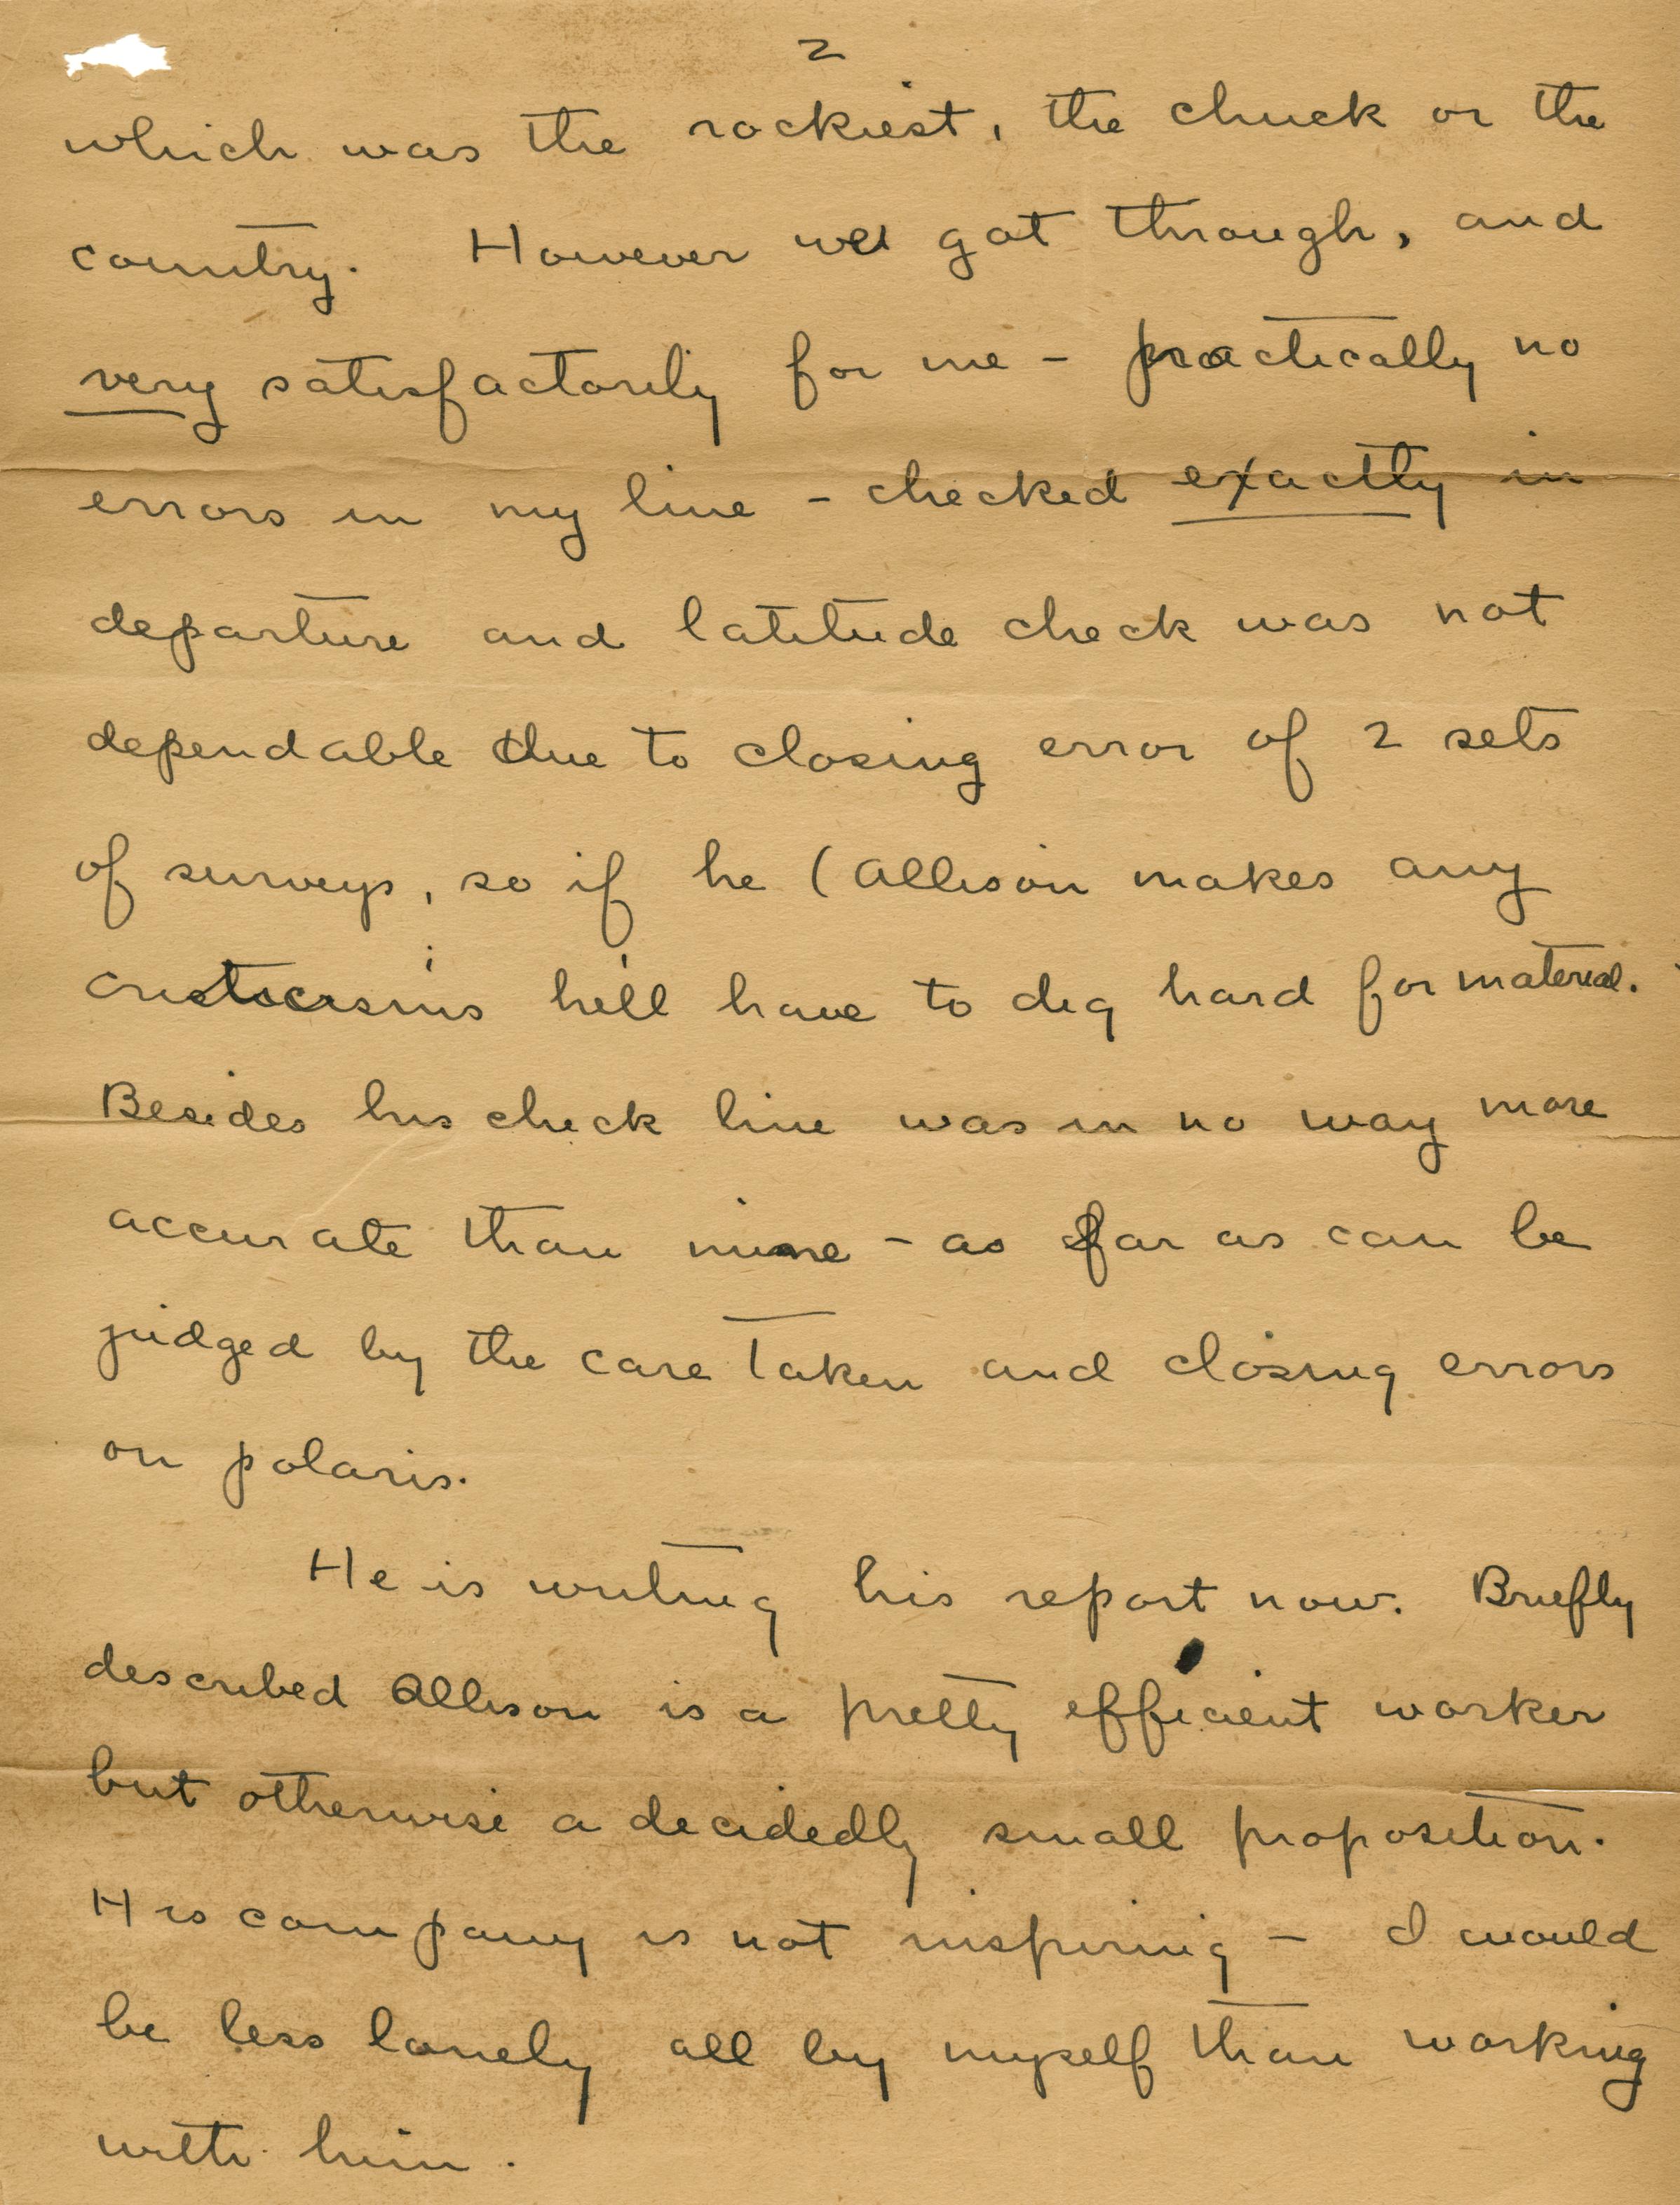 2
which was the rockiest, the chuck or the
country. However we got through, and
very satisfactorily for me - practically no
errors in my line - checked exactly in
departure and latitude check was not
dependable due to closing error of 2 sets
of surveys, so if he (Allison makes any
criticisms he'll have to dig hard for material.
Besides his check line was in no way more
accurate than mine - as far as can be
judged by the care taken and closing errors
on polaris.
He is writing his report now. Briefly
described Allison is a pretty efficient worker
but otherwise a decidedly small proposition.
His company is not inspiring - I would
be less lonely all by myself than working
with him.